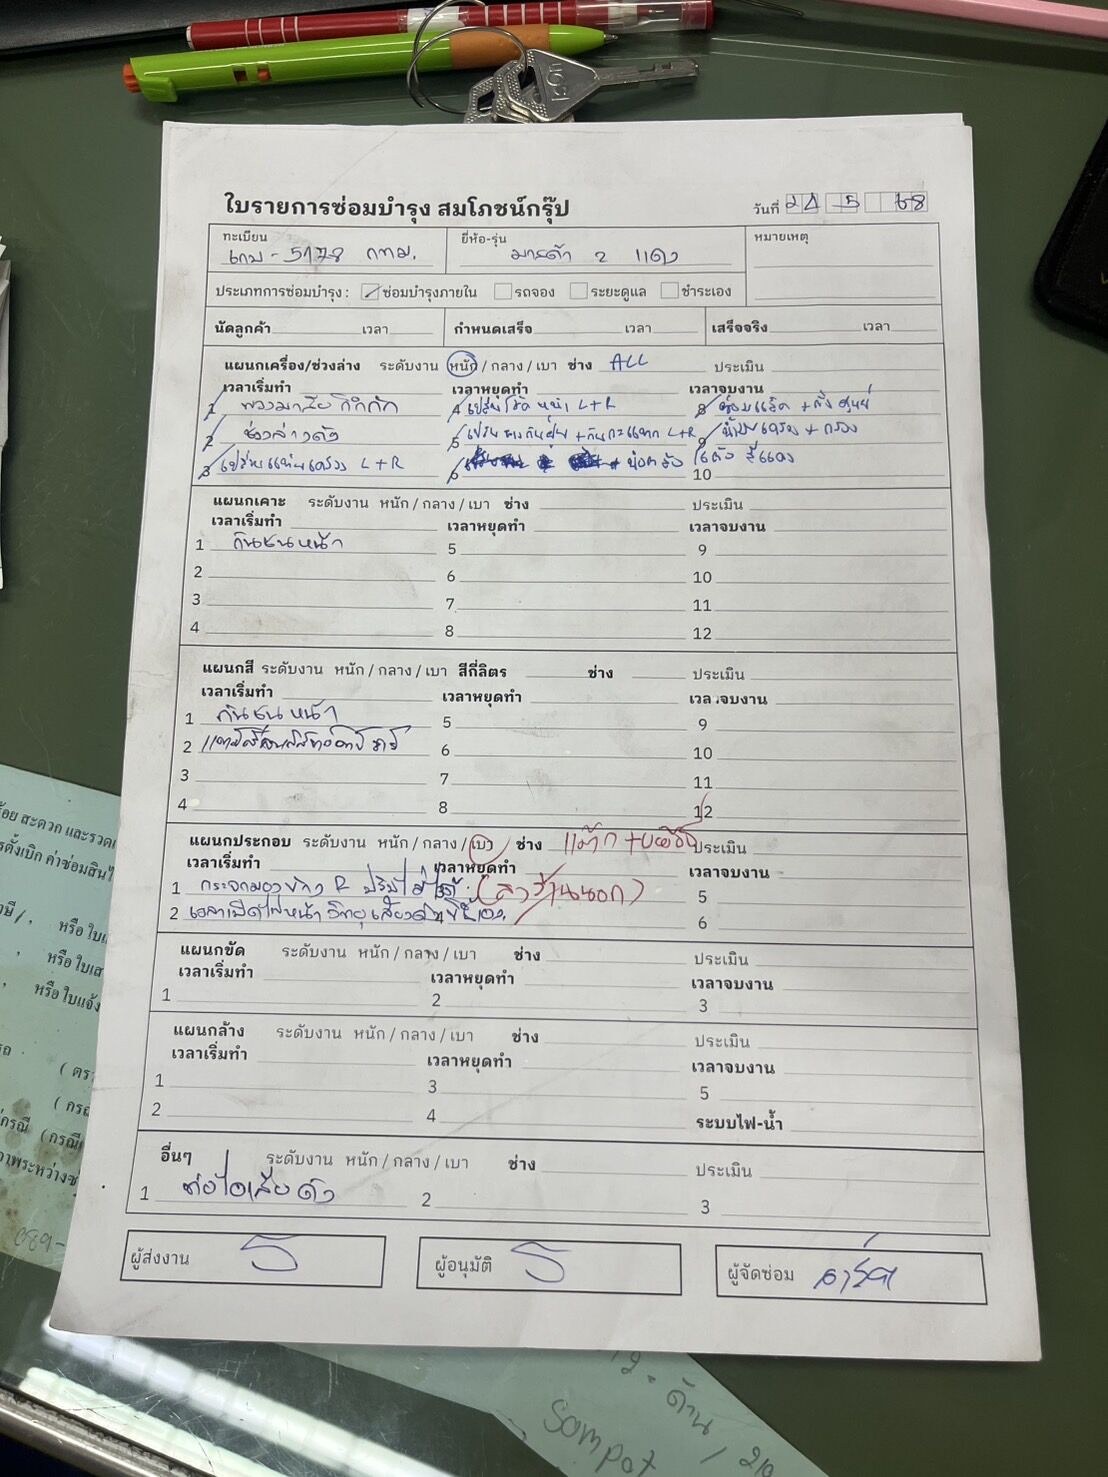 ใบรายการซ่อมบำรุง สมโภชน์กรุ๊ป
วันที่ 24 5 68
ทะเบียน ยี่ห้อ-รุ่น หมายเหตุ
5178 กทม. มาสด้า 2 แดง
ประเภทการซ่อมบำรุง : ซ่อมบำรุงภายใน รถจอง ระยะดูแล ชำระเอง
นัดลูกค้า เวลา กำหนดเสร็จ เวลา เสร็จจริง เวลา
แผนกเครื่อง/ช่วงล่าง ระดับงาน หนัก / กลาง / เบา ช่าง ALL ประเมิน
เวลาเริ่มทำ เวลาหยุดทำ เวลาจบงาน
1 พวงมาลัย กึกกัก 4 เปลี่ยนโช้ค หน้า L+R 8 ซ่อมแร็ค + ตั้งศูนย์
2 ช่วงล่างดัง 5 เปลี่ยนยางกันฝุ่น + กันกระแทก L+R 9 น้ำมันเครื่อง + กรอง
3 เปลี่ยนแท่นเครื่อง L+R 6 10
แผนกเคาะ ระดับงาน หนัก / กลาง / เบา ช่าง ประเมิน
เวลาเริ่มทำ เวลาหยุดทำ เวลาจบงาน
1 กันชนหน้า 5 9
2 6 10
3 7 11
4 8 12
แผนกสี ระดับงาน หนัก / กลาง / เบา สีกี่ลิตร ช่าง ประเมิน
เวลาเริ่มทำ เวลาหยุดทำ เวลาจบงาน
1 กันชนหน้า 5 9
2 6 10
3 7 11
4 8 12
แผนกประกอบ ระดับงาน หนัก / กลาง / เบา ช่าง ประเมิน
เวลาเริ่มทำ เวลาหยุดทำ เวลาจบงาน
1 กระจกมองข้าง R ปรับไม่ได้ 5
2 เวลาเปิดไฟหน้า วิทยุเสียงดังขึ้นเอง 6
แผนกขัด ระดับงาน หนัก / กลาง / เบา ช่าง ประเมิน
เวลาเริ่มทำ เวลาหยุดทำ เวลาจบงาน
1 2 3
แผนกล้าง ระดับงาน หนัก / กลาง / เบา ช่าง ประเมิน
เวลาเริ่มทำ เวลาหยุดทำ เวลาจบงาน
1 3 5
2 4 ระบบไฟ-น้ำ
อื่นๆ ระดับงาน หนัก / กลาง / เบา ช่าง ประเมิน
1 ท่อไอเสีย ดัง 2 3
ผู้ส่งงาน ผู้อนุมัติ ผู้จัดซ่อม
หรือ ใบแจ้ง
Sompot